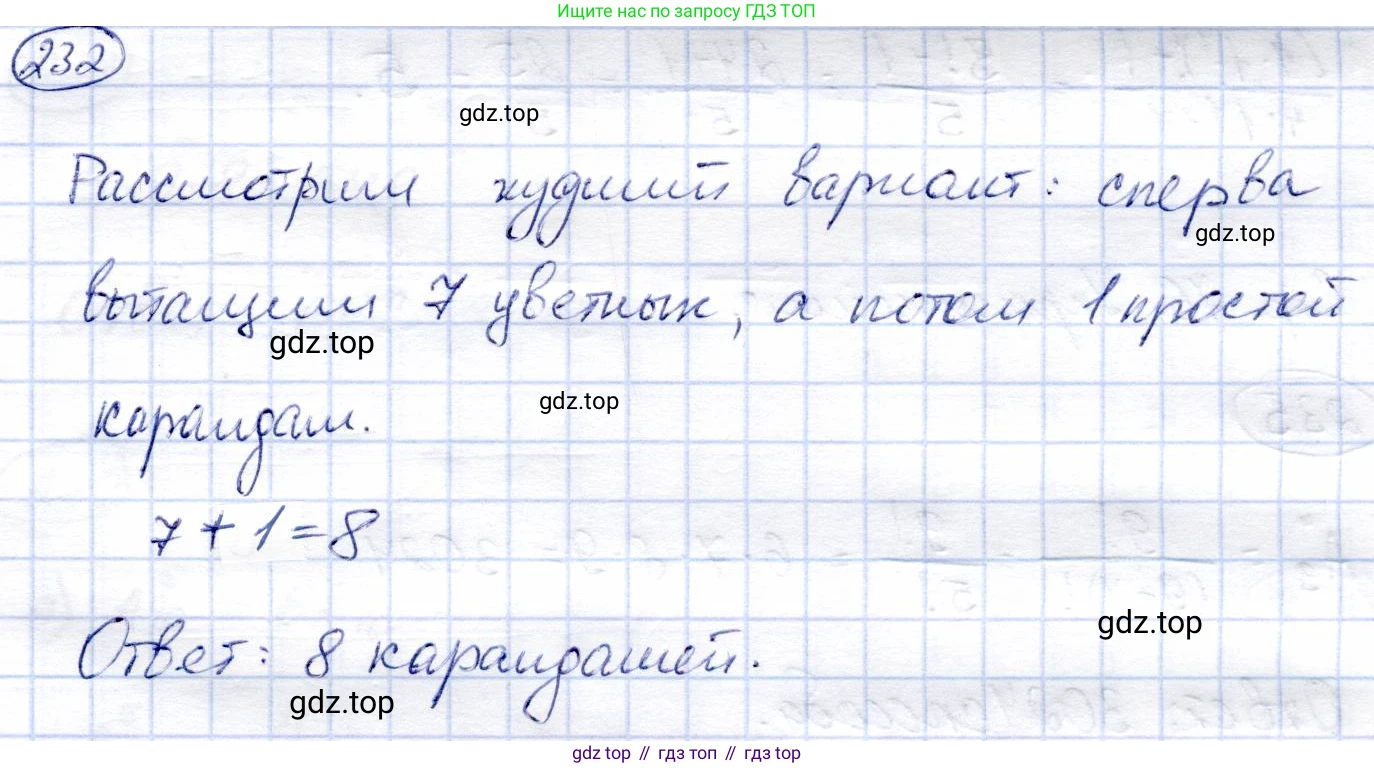 Ищите нас по запросу ГДЗ ТОП
232
gdz.top
Рассмотрим худший вариант: сперва
gdz.top
вытащим 7 цветных, а потом 1 простой
gdz.top
gdz.top
карандаш.
7 + 1 = 8
gdz.top
Ответ: 8 карандашей.
gdz.top
gdz top // гдз топ // gdz top